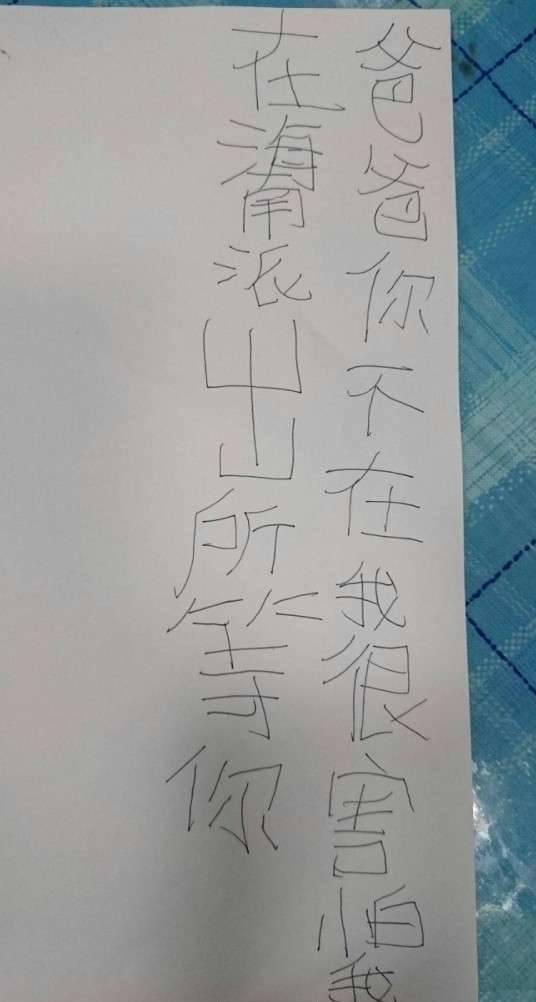 爸爸你不在我很害怕我
在派出所等你